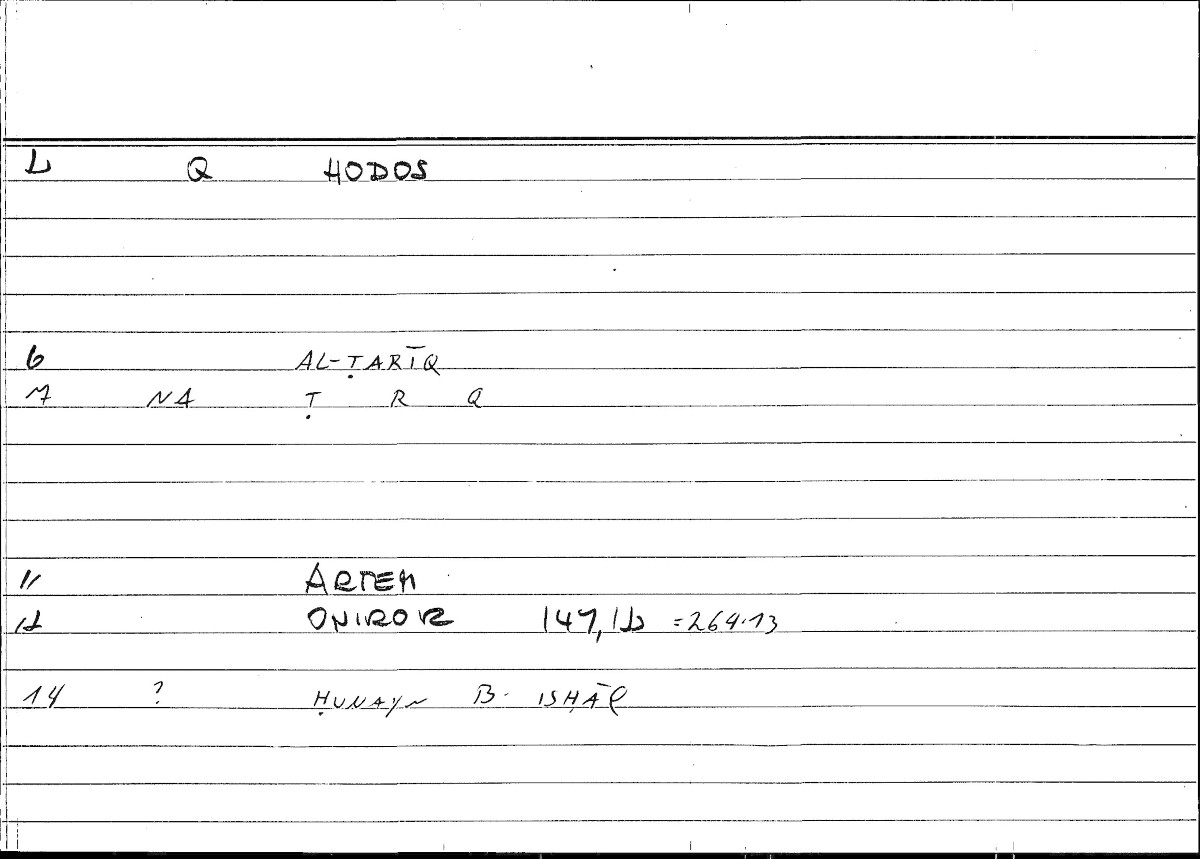 2 Q HODOS
6 AL-ṬARĪQ
7 NA Ṭ R Q
11 ARTEM
12 ONIROK 147,12 =264.13
14 ? ḤUNAYN B. ISḤĀQ